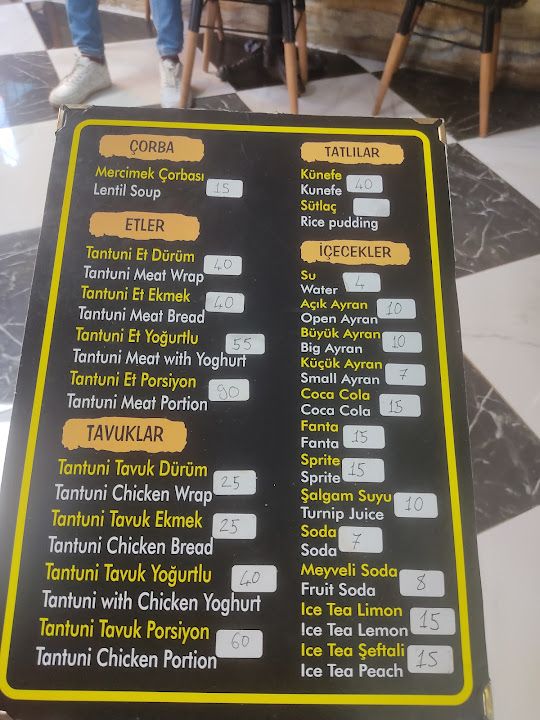 ÇORBA
Mercimek Çorbası
Lentil Soup 15
ETLER
Tantuni Et Dürüm
Tantuni Meat Wrap 40
Tantuni Et Ekmek
Tantuni Meat Bread 40
Tantuni Et Yoğurtlu
Tantuni Meat with Yoghurt 55
Tantuni Et Porsiyon
Tantuni Meat Portion 90
TAVUKLAR
Tantuni Tavuk Dürüm
Tantuni Chicken Wrap 25
Tantuni Tavuk Ekmek
Tantuni Chicken Bread 25
Tantuni Tavuk Yoğurtlu
Tantuni with Chicken Yoghurt 40
Tantuni Tavuk Porsiyon
Tantuni Chicken Portion 60
TATLILAR
Künefe
Kunefe 40
Sütlaç
Rice pudding
İÇECEKLER
Su
Water 4
Açık Ayran
Open Ayran 10
Büyük Ayran
Big Ayran 10
Küçük Ayran
Small Ayran 7
Coca Cola
Coca Cola 15
Fanta
Fanta 15
Sprite
Sprite 15
Şalgam Suyu
Turnip Juice 10
Soda
Soda 7
Meyveli Soda
Fruit Soda 8
Ice Tea Limon
Ice Tea Lemon 15
Ice Tea Şeftali
Ice Tea Peach 15